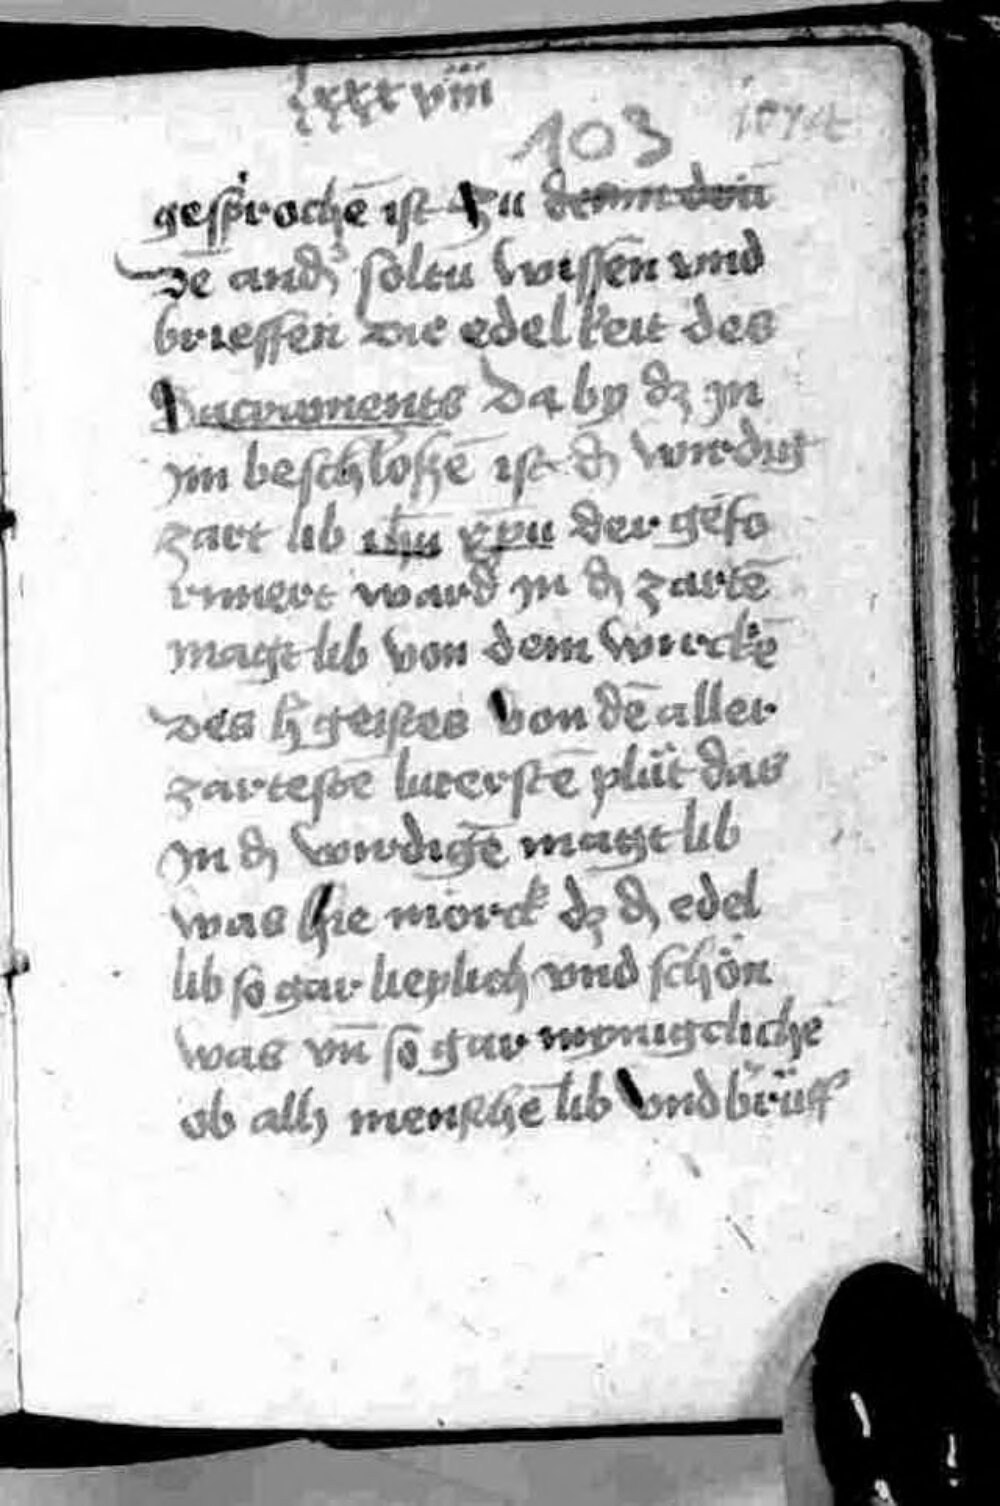 lxxxviii
103
gesprochē ist zu
Zē andˀ soltu wissen vnd
brieffen die edelkeit des
Sacraments Da by dz jn
jm beschloßē ist dˀ wirdig
zart lib ihū xpū der gefo
rmiert ward jn dˀ zartē
magt lib von dem wirckē
des hˀ geistes von dē aller
zartestē luterstē plüt das
jn dˀ wirdigē magt lib
was hie mörck dz dˀ edel
lib so gar lieplich vnd schön
was vn̄ so gar mynigcliche
ob allˀ menschē lib vnd brüff